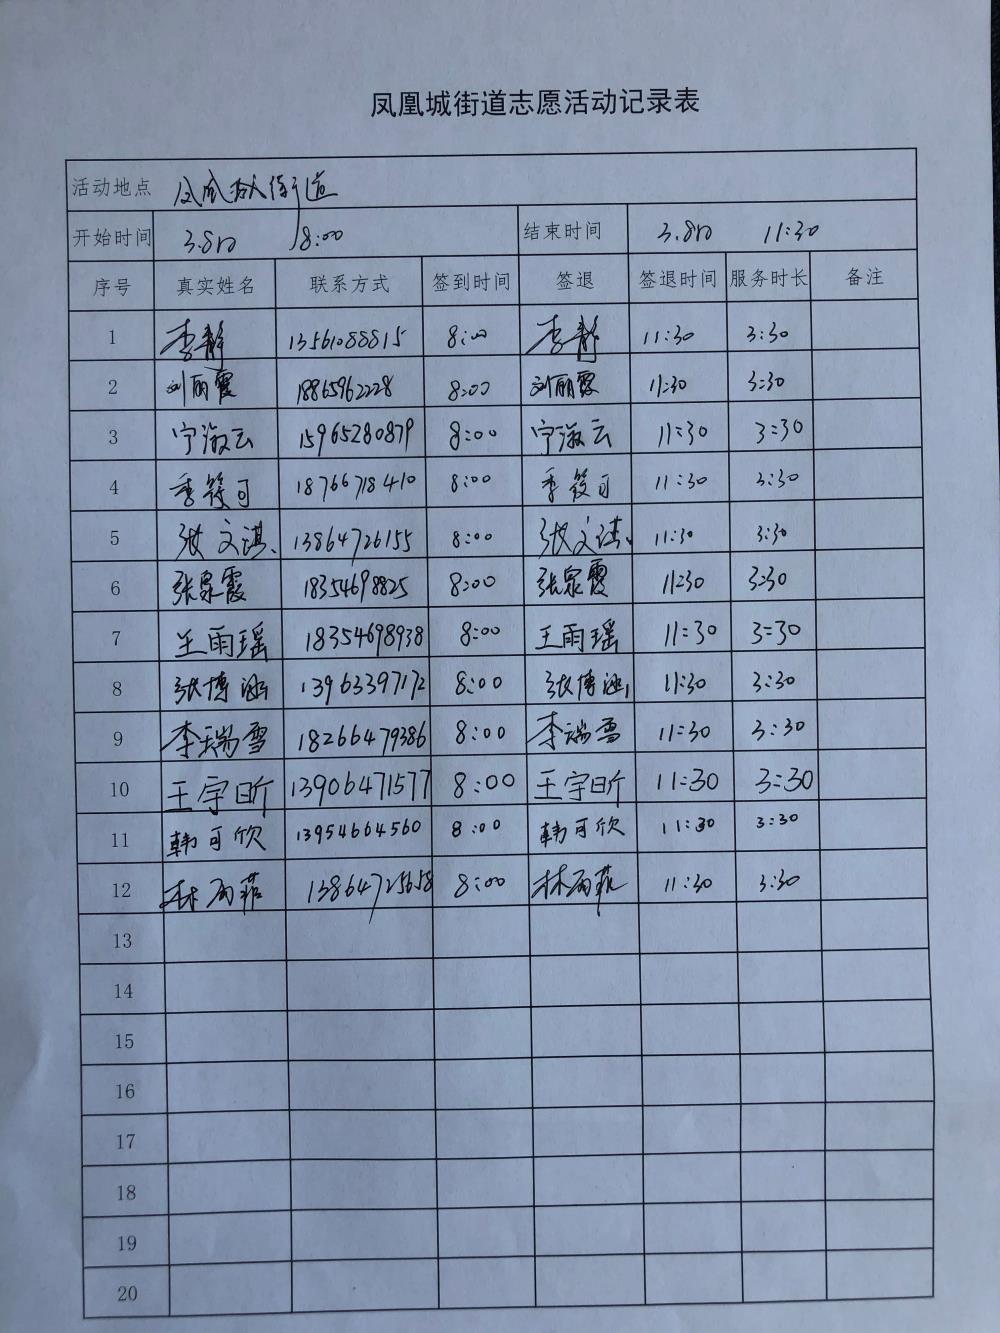 凤凰城街道志愿活动记录表
活动地点 凤凰城街道
开始时间 3.8日 8:00 结束时间 3.8日 11:30
序号 真实姓名 联系方式 签到时间 签退 签退时间 服务时长 备注
1 李静 13561088815 8:00 李静 11:30 3:30
2 刘丽霞 18865962228 8:00 刘丽霞 11:30 3:30
3 宁淑云 15965280879 8:00 宁淑云 11:30 3:30
4 季筱可 18766718410 8:00 季筱可 11:30 3:30
5 张文淇 13864726155 8:00 张文淇 11:30 3:30
6 张泉霞 18354698825 8:00 张泉霞 11:30 3:30
7 王雨瑶 18354698938 8:00 王雨瑶 11:30 3:30
8 张博涵 13963397172 8:00 张博涵 11:30 3:30
9 李瑞雪 18266479386 8:00 李瑞雪 11:30 3:30
10 王宇昕 13906471577 8:00 王宇昕 11:30 3:30
11 韩可欣 13954664560 8:00 韩可欣 11:30 3:30
12 林雨菲 13864725658 8:00 林雨菲 11:30 3:30
13
14
15
16
17
18
19
20